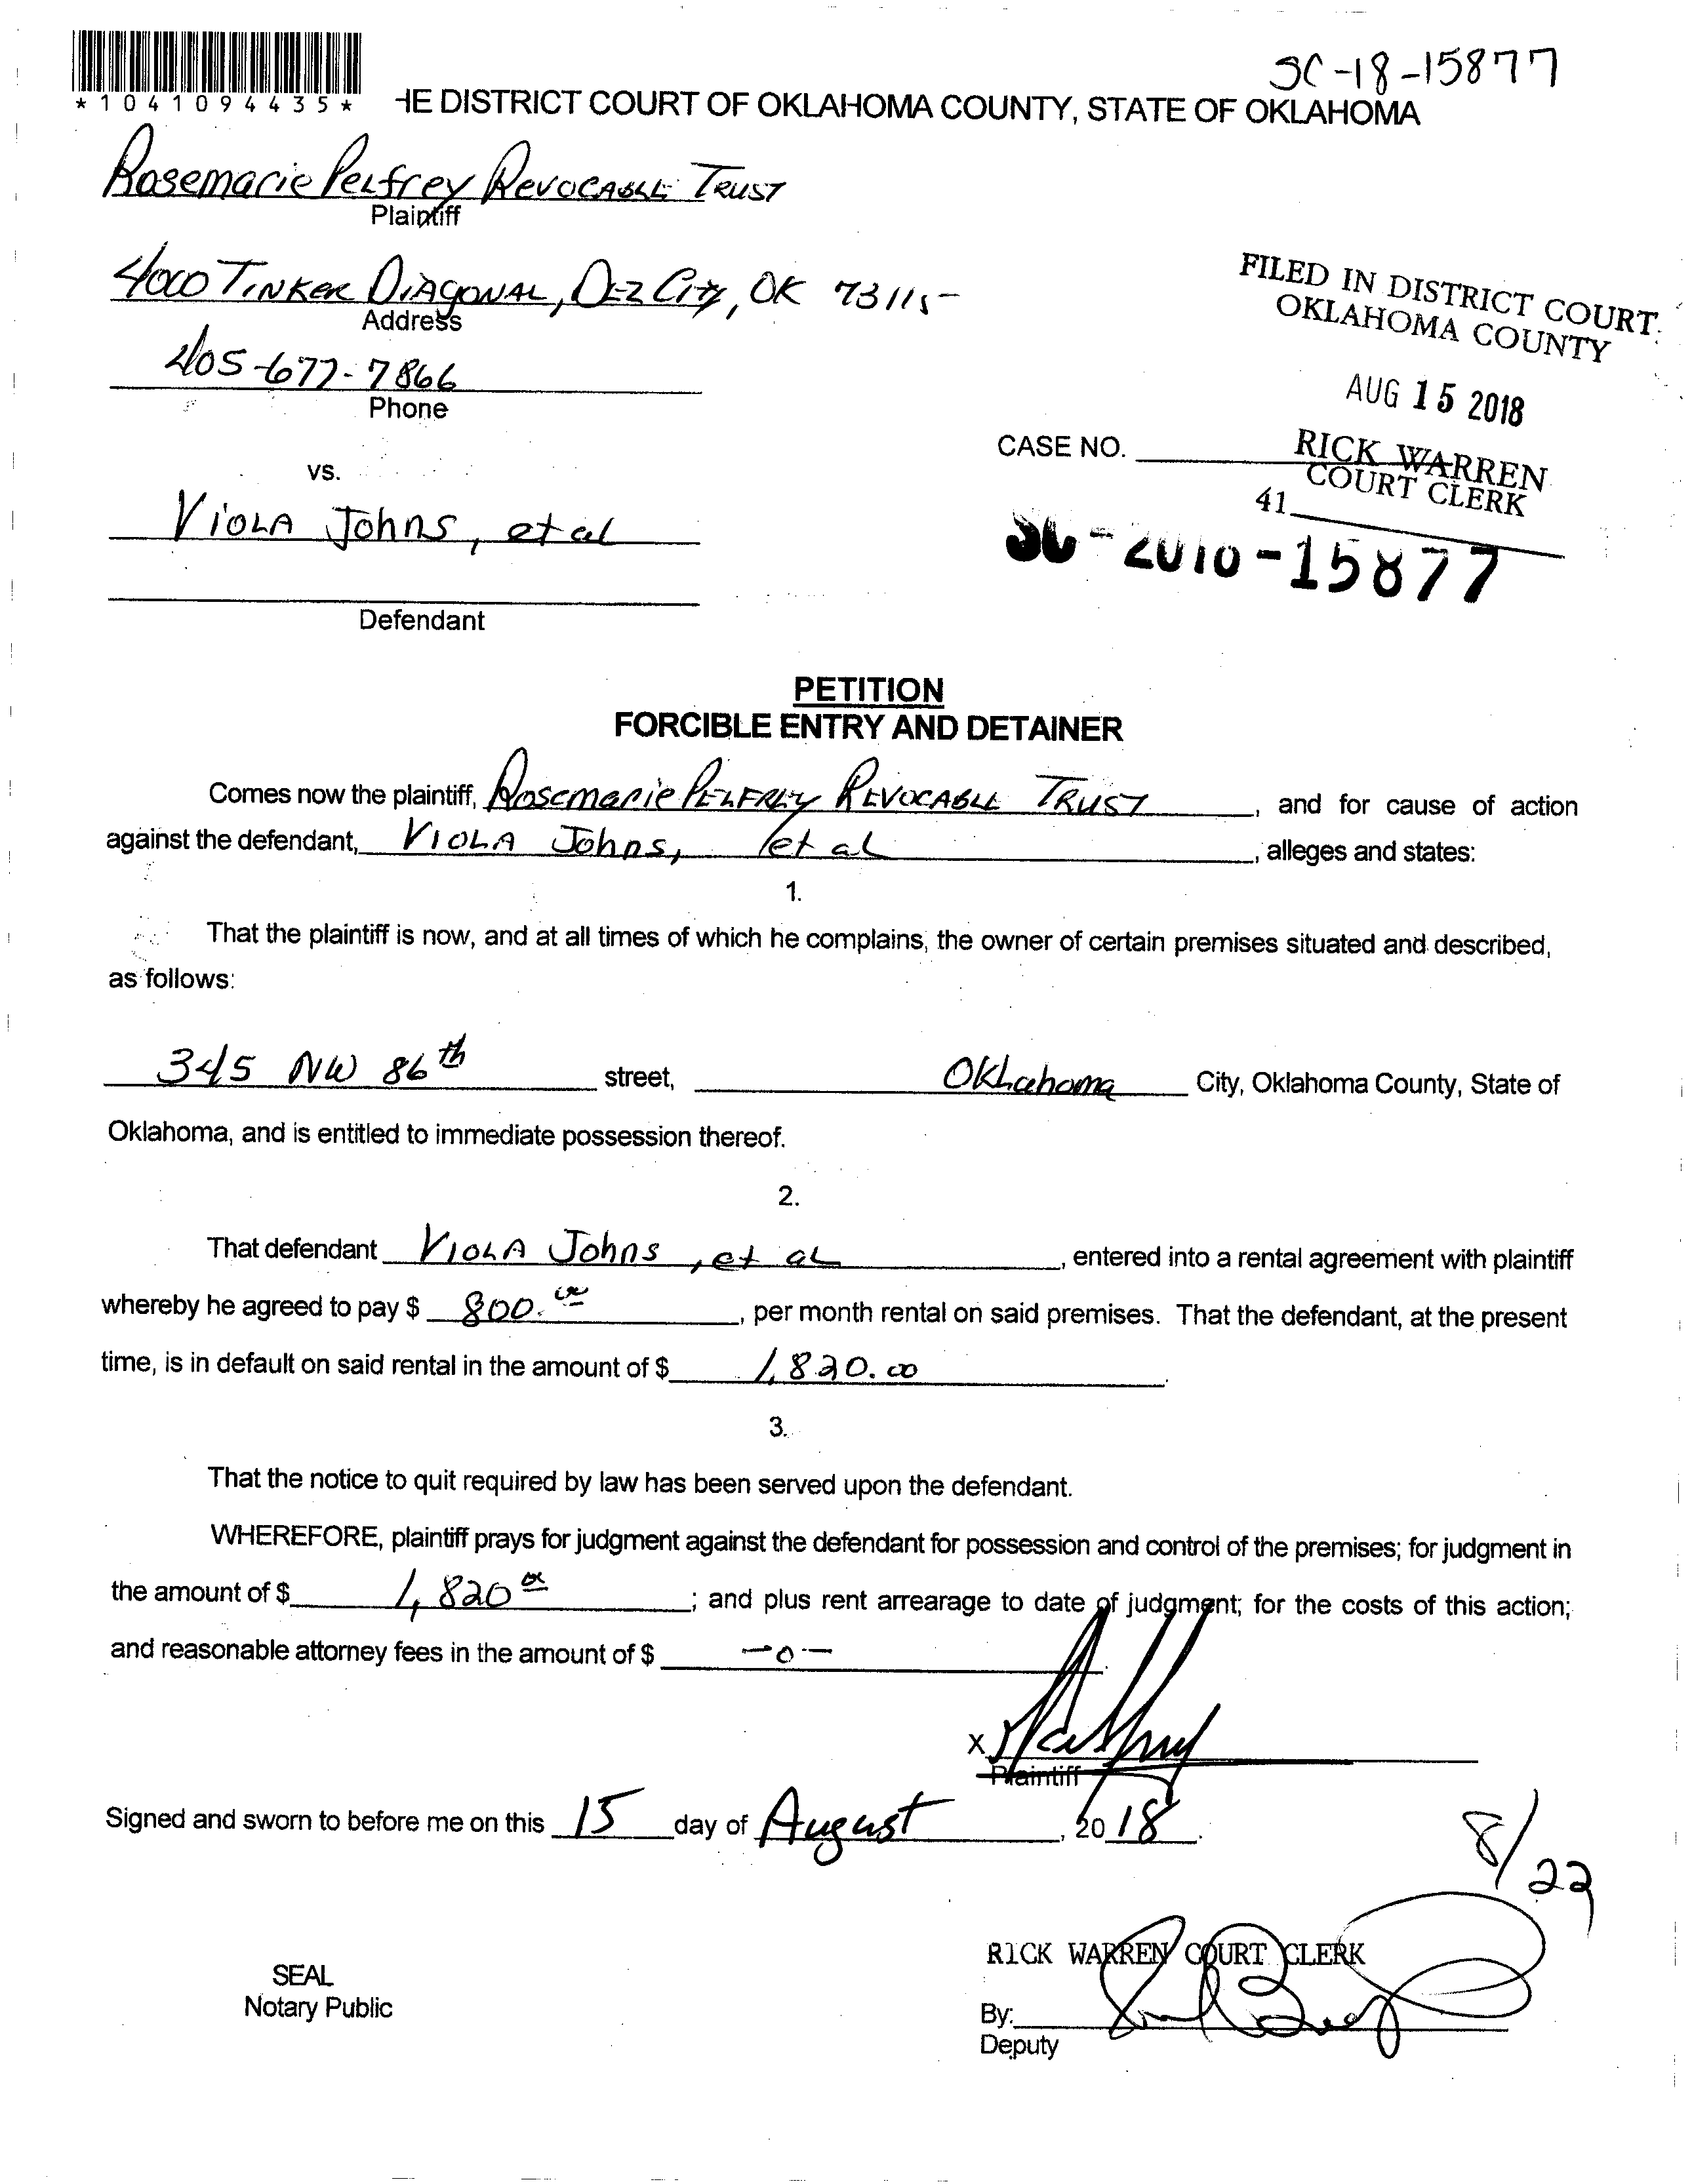 SC-18-15877
*1041094435*
HE DISTRICT COURT OF OKLAHOMA COUNTY, STATE OF OKLAHOMA
Rosemarie Pelfrey Revocable Trust
Plaintiff
4000 Tinker Diagonal, Del City, OK 73115
Address
405-677-7866
Phone
FILED IN DISTRICT COURT
OKLAHOMA COUNTY
AUG 15 2018
RICK WARREN
COURT CLERK
41
CASE NO.
SC-2018-15877
vs.
Viola Johns, et al
Defendant
PETITION
FORCIBLE ENTRY AND DETAINER
Comes now the plaintiff, Rosemarie Pelfrey Revocable Trust, and for cause of action
against the defendant, Viola Johns, et al, alleges and states:
1.
That the plaintiff is now, and at all times of which he complains, the owner of certain premises situated and described,
as follows:
345 NW 86th street, Oklahoma City, Oklahoma County, State of
Oklahoma, and is entitled to immediate possession thereof.
2.
That defendant Viola Johns, et al, entered into a rental agreement with plaintiff
whereby he agreed to pay $ 800.00, per month rental on said premises. That the defendant, at the present
time, is in default on said rental in the amount of $ 1,820.00.
3.
That the notice to quit required by law has been served upon the defendant.
WHEREFORE, plaintiff prays for judgment against the defendant for possession and control of the premises; for judgment in
the amount of $ 1,820 00; and plus rent arrearage to date of judgment; for the costs of this action;
and reasonable attorney fees in the amount of $ -0-.
X
Plaintiff
Signed and sworn to before me on this 15 day of August, 2018.
8/22
RICK WARREN COURT CLERK
SEAL
Notary Public
By:
Deputy